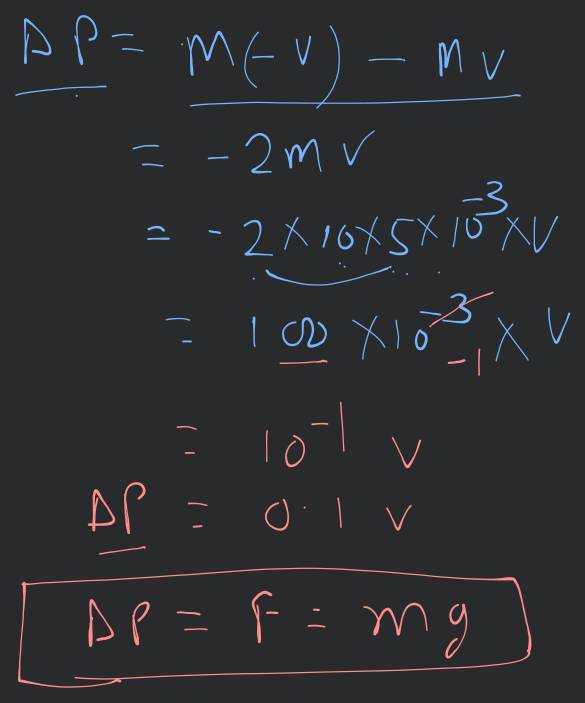 ΔP = M(-v) - Mv
= -2mv
= -2×10×5×10⁻³×V
= 100×10⁻³×V
-1
= 10⁻¹ v
ΔP = 0.1 v
ΔP = F = mg